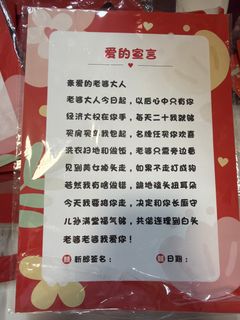 爱的宣言
亲爱的老婆大人
老婆大人今日起，以后心中只有你
经济大权在你手，每天二十我就够
买房买车我包起，名缝任买你欢喜
洗衣扫地和做饭，老婆只需旁边看
见到美女掉头走，如果不走打成狗
若然我有啥做错，跪地磕头扭耳朵
今天我要将你走，决定和你长厮守
儿孙满堂福气够，共偕连理到白头
老婆老婆我爱你！
囍新郎签名： 囍日期：